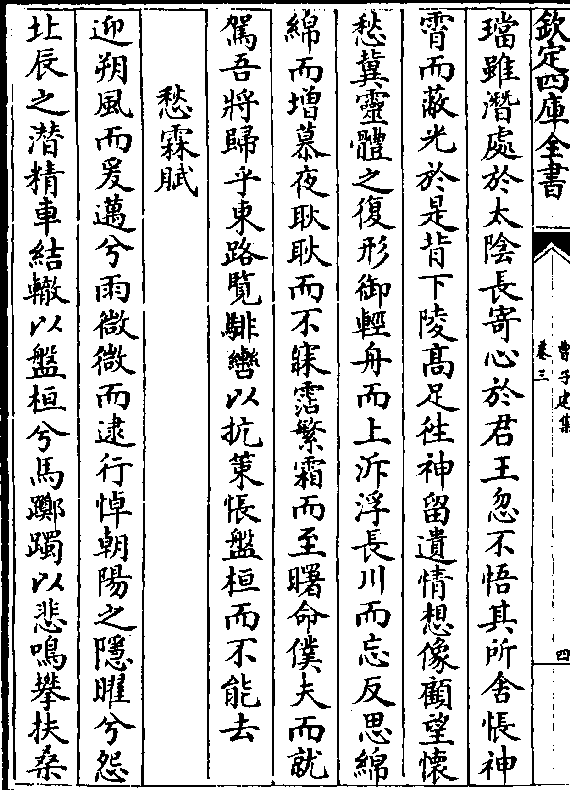 欽定四庫全書
曹子建集
卷三
四
璫雖潛處於太陰長寄心於君王忽不悟其所舍悵神
霄而蔽光於是背下陵高足往神留遺情想像顧望懷
愁冀靈體之復形御輕舟而上泝浮長川而忘反思綿
綿而增慕夜耿耿而不寐霑繁霜而至曙命僕夫而就
駕吾將歸乎東路覽騑轡以抗策悵盤桓而不能去
愁霖賦
迎朔風而爰邁兮雨微微而逮行悼朝陽之隱曜兮怨
北辰之潛精車結轍以盤桓兮馬躑躅以悲鳴攀扶桑